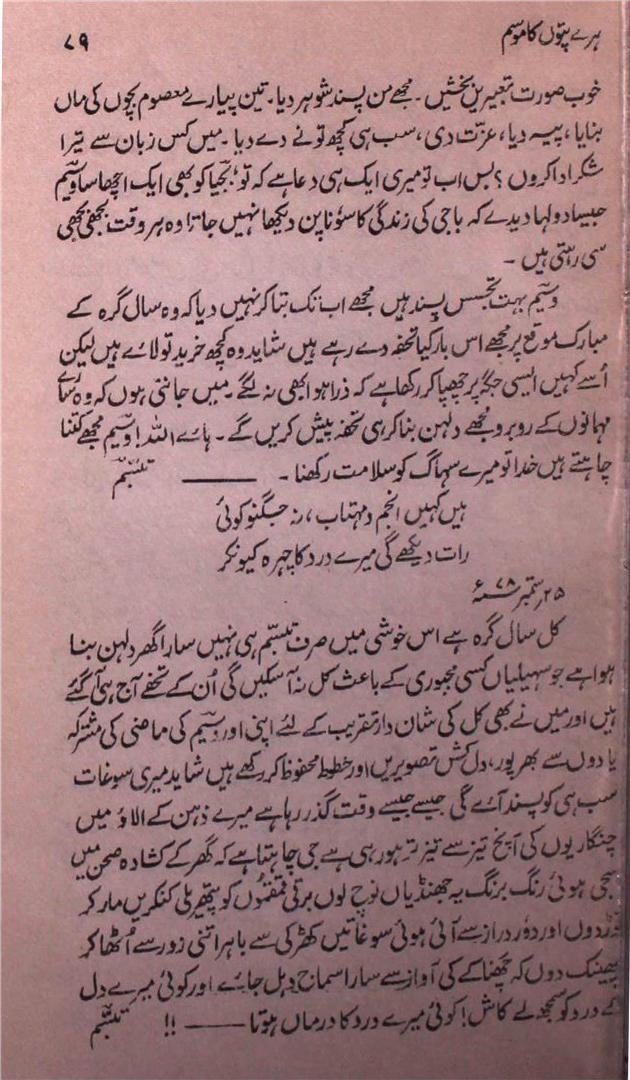 ہرے پتوں کا موسم ۷۹
خوب صورت تعبیریں بخشیں۔ مجھے من پسند شوہر دیا۔ تین پیارے معصوم بچوں کی ماں
بنایا، پیسہ دیا، عزّت دی، سب ہی کچھ تو نے دے دیا۔ میں کس زبان سے تیرا
شکر ادا کروں؟ بس اب تو میری ایک ہی دعا ہے کہ تو بجیا کو بھی ایک اچھا سا وسیم
جیسا دولہا دیدے کہ باجی کی زندگی کا سوٗنا پن دیکھا نہیں جاتا وہ ہر وقت بجھی بجھی
سی رہتی ہیں۔
وسیم بہت تجسس پسند ہیں مجھے اب تک بتا کر نہیں دیا کہ وہ سال گرہ کے
مبارک موقع پر مجھے اس بار کیا تحفہ دے رہے ہیں شاید وہ کچھ خرید تو لائے ہیں لیکن
اُسے کہیں ایسی جگہ پر چھپا کر رکھا ہے کہ ذرا ہوا بھی نہ لگے۔ میں جانتی ہوں کہ وہ سارے
مہمانوں کے روبرو مجھے دلہن بنا کر ہی تحفہ پیش کریں گے۔ ہائے اللہ! وسیم مجھے کتنا
چاہتے ہیں خدا تو میرے سہاگ کو سلامت رکھنا۔ ——— تبسّم
ہیں کہیں انجم و مہتاب، نہ جگنو کوئی
رات دیکھے گی میرے درد کا چہرہ کیونکر
۲۵ ستمبر ۷۸ء
کل سال گرہ ہے اس خوشی میں صرف تبسّم ہی نہیں سارا گھر دلہن بنا
ہوا ہے جو سہیلیاں کسی مجبوری کے باعث کل نہ آ سکیں گی اُن کے تحفے آج ہی آ گئے
ہیں اور میں نے بھی کل کی شان دار تقریب کے لئے اپنی اور وسیم کی ماضی کی مشترکہ
یادوں سے بھرپور، دل کش تصویریں اور خطوط محفوظ کر رکھے ہیں شاید میری سوغات
سب ہی کو پسند آئے گی جیسے جیسے وقت گذر رہا ہے میرے ذہن کے الاؤ میں
چنگاریوں کی آنچ تیز سے تیز تر ہو رہی ہے جی چاہتا ہے کہ گھر کے کشادہ صحن میں
سجی ہوئی رنگ برنگ یہ جھنڈیاں نوچ لوں برقی قمقموں کو پتھریلی کنکریں مار کر
توڑ دوں اور دُور دراز سے آئی ہوئی سوغاتیں کھڑکی سے باہر اتنی زور سے اُٹھا کر
پھینک دوں کہ چھناکے کی آواز سے سارا سماج دہل جائے اور کوئی میرے دل
کے درد کو سمجھ لے کاش! کوئی میرے درد کا درماں ہوتا ——— !! تبسّم